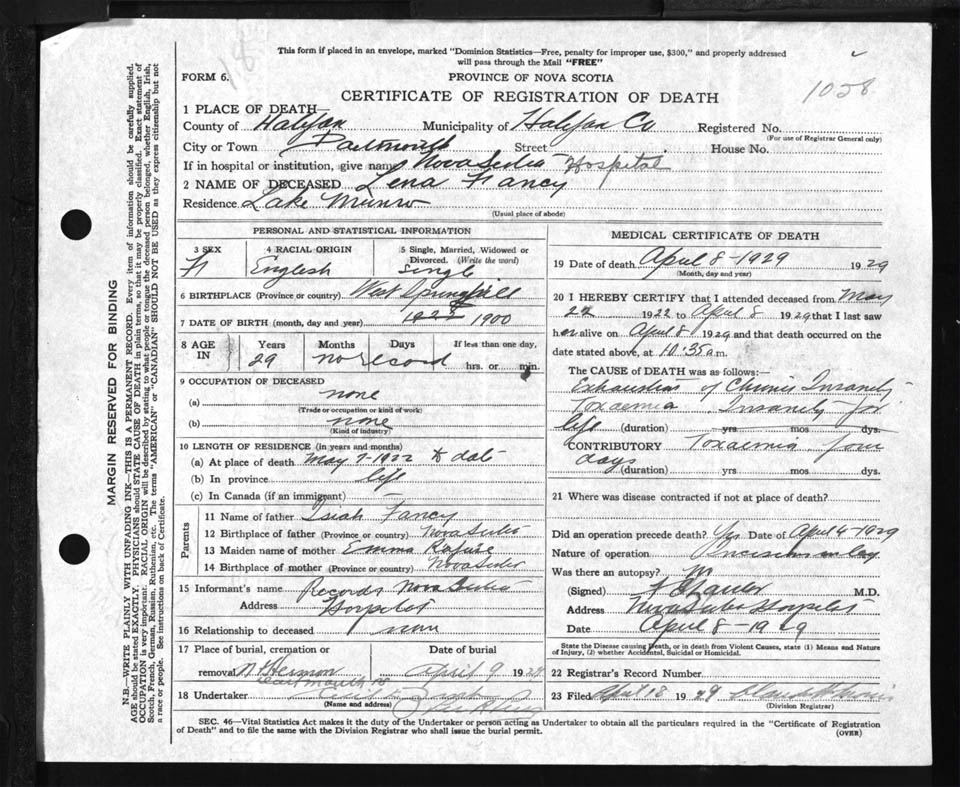 This form if placed in an envelope, marked "Dominion Statistics—Free, penalty for improper use, $300," and properly addressed
will pass through the Mail "FREE"
FORM 6.
PROVINCE OF NOVA SCOTIA
1058
CERTIFICATE OF REGISTRATION OF DEATH
1 PLACE OF DEATH—
County of Halifax Municipality of Halifax Co Registered No.
(For use of Registrar General only)
City or Town Dartmouth Street House No.
If in hospital or institution, give name Nova Scotia Hospital
2 NAME OF DECEASED Lena Fancy
Residence Lake Munro
(Usual place of abode)
PERSONAL AND STATISTICAL INFORMATION
3 SEX 4 RACIAL ORIGIN 5 Single, Married, Widowed or
Divorced. (Write the word)
F English Single
6 BIRTHPLACE (Province or country) West Springfield
7 DATE OF BIRTH (month, day and year) 1900
8 AGE IN Years Months Days If less than one day,
29 no record hrs. or min.
9 OCCUPATION OF DECEASED
(a) none
(Trade or occupation or kind of work)
(b) none
(Kind of industry)
10 LENGTH OF RESIDENCE (in years and months)
(a) At place of death May 7-1922 to date
(b) In province life
(c) In Canada (if an immigrant)
Parents
11 Name of father Isiah Fancy
12 Birthplace of father (Province or country) Nova Scotia
13 Maiden name of mother Emma Rafuse
14 Birthplace of mother (Province or country) Nova Scotia
15 Informant's name Records Nova Scotia
Address Hospital
16 Relationship to deceased none
17 Place of burial, cremation or Date of burial
removal Mt Hermon April 9 1929
Dartmouth
18 Undertaker
(Name and address)
MEDICAL CERTIFICATE OF DEATH
19 Date of death April 8-1929 1929
(Month, day and year)
20 I HEREBY CERTIFY that I attended deceased from May
1922 to April 8 1929 that I last saw
her alive on April 8 1929 and that death occurred on the
date stated above, at 10:35 a.m.
The CAUSE of DEATH was as follows:—
Exhaustion of Chronic Insanity
Toxaemia Insanity for
life (duration) yrs mos dys.
CONTRIBUTORY Toxaemia four
days (duration) yrs mos dys.
21 Where was disease contracted if not at place of death?
Did an operation precede death? Yes Date of April 6-1929
Nature of operation Incision on leg
Was there an autopsy? no
(Signed) M.D.
Address Nova Scotia Hospital
Date April 8-1929
State the Disease causing Death, or in death from Violent Causes, state (1) Means and Nature
of Injury, (2) whether Accidental, Suicidal or Homicidal.
22 Registrar's Record Number
23 Filed April 18 1929
(Division Registrar)
SEC. 46—Vital Statistics Act makes it the duty of the Undertaker or person acting as Undertaker to obtain all the particulars required in the "Certificate of Registration
of Death" and to file the same with the Division Registrar who shall issue the burial permit.
(OVER)
MARGIN RESERVED FOR BINDING
N.B.—WRITE PLAINLY WITH UNFADING INK—THIS IS A PERMANENT RECORD. Every item of information should be carefully supplied.
AGE should be stated EXACTLY. PHYSICIANS should STATE CAUSE OF DEATH in plain terms, so that it may be properly classified. Exact statement of
OCCUPATION is very important. RACIAL ORIGIN will be described by stating to what people or tongue the deceased person belonged, whether English, Irish,
Scotch, French, German, Russian, Ruthenian, etc. The terms "AMERICAN" or "CANADIAN" SHOULD NOT BE USED as they express citizenship but not
a race or people. See instructions on back of Certificate.